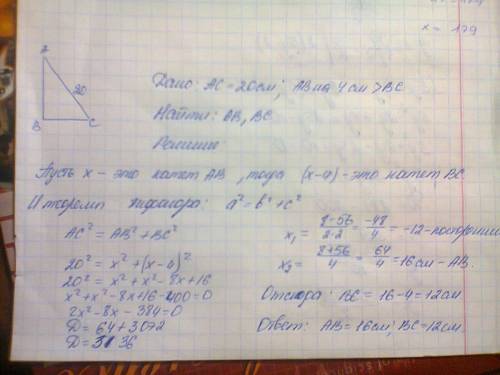 x = 179
A
20
B
C
Дано: AC = 20см; AB на 4 см > BC
Найти: AB, BC
Решение:
Пусть x - это катет AB, тогда (x-4) - это катет BC
теореме пифагора: a² = b² + c²
AC² = AB² + BC²
20² = x² + (x-4)²
20² = x² + x² - 8x + 16
x² + x² - 8x + 16 - 400 = 0
2x² - 8x - 384 = 0
D = 64 + 3072
D = 3136
x₁ = (8-56)/(2·2) = -48/4 = -12 - посторонний
x₂ = (8+56)/4 = 64/4 = 16см - AB.
Отсюда: BC = 16-4 = 12см.
Ответ: AB = 16см; BC = 12см.